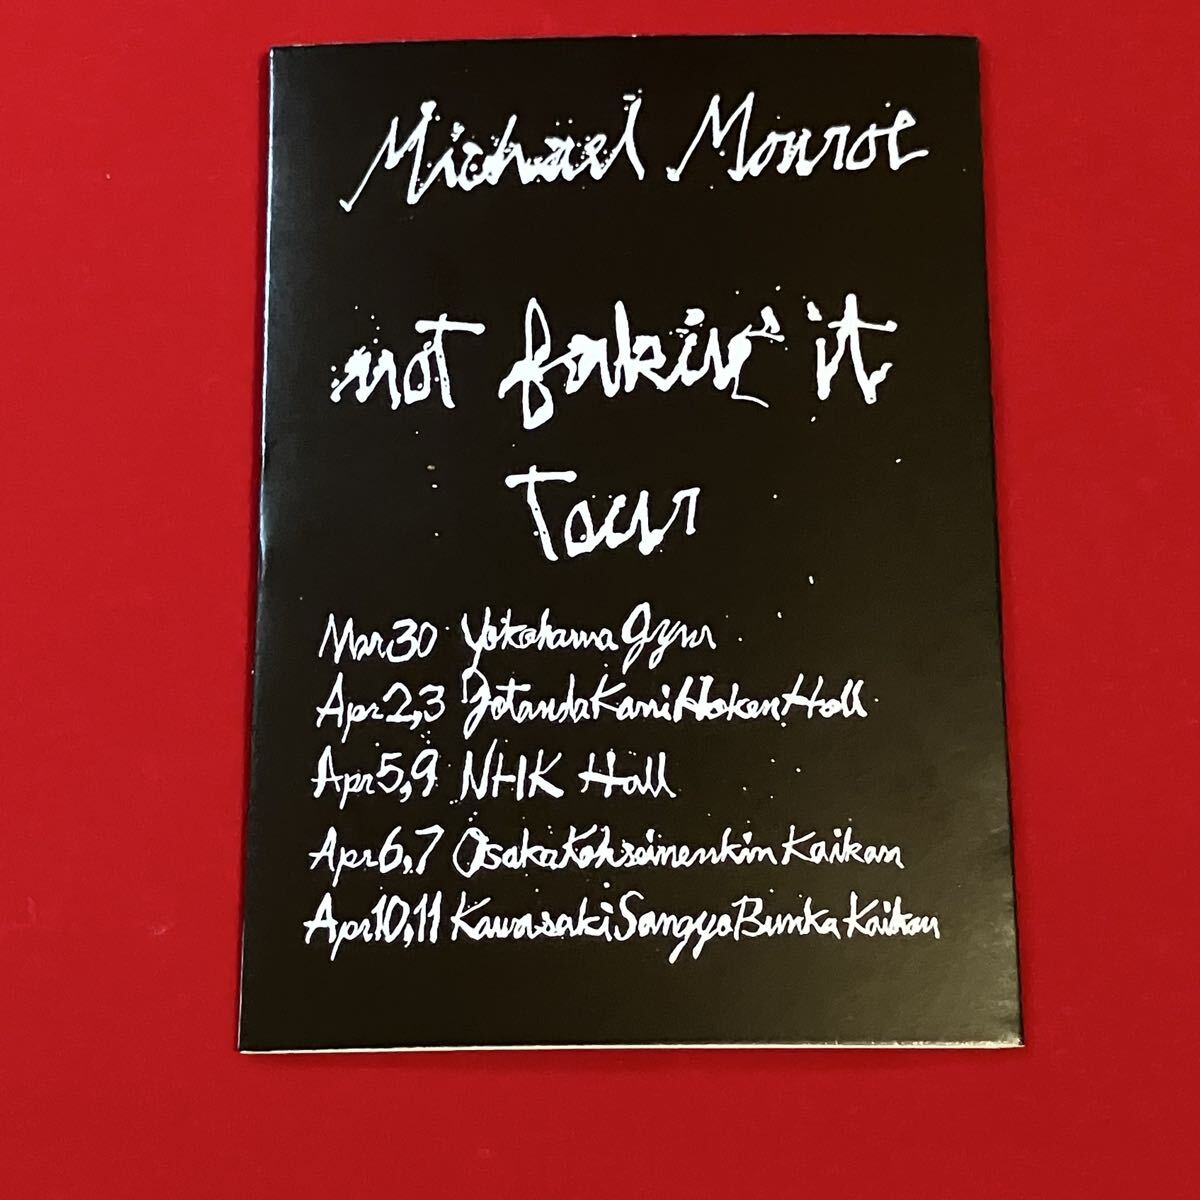 Michael Monroe
not fakin' it
Tour
Mar 30 Yokohama gym
Apr 2,3 Gotanda Kani Hoken Hall
Apr 5,9 NHK Hall
Apr 6,7 Osaka Kohseinenkin Kaikan
Apr 10,11 Kawasaki Sangyo Bunka Kaikan